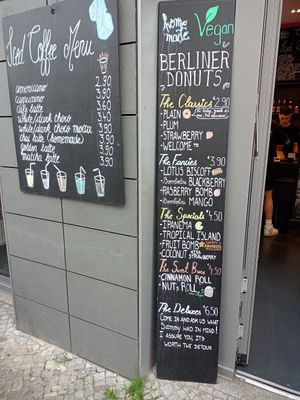 Iced Coffee Menu
americano 2.90
cappuccino 3.80
cafe latte 3.60
white/dark choco 3.40
white/dark choco mocca 3.90
chai latte (homemade) 3.90
golden latte 3.90
matcha latte 3.90
Home made Vegan
BERLINER
DONUTS
The Classics €2.90
- PLAIN
- PLUM
- STRAWBERRY
- WELCOME TO
The Fancies €3.90
- LOTUS BISCOFF
- Bombolon BLACKBERRY
- RASBERRY BOMB
- Bombolon MANGO
The Specials €4.50
- IPANEMA
- TROPICAL ISLAND
- FRUIT BOMB
- COCONUT STRAWBERRY
The Sweet Buns €4.50
- CINNAMON ROLL
- NUTS ROLL
The Deluxes €6.50
COME IN AND ASK WHAT
Sammy HAD IN MIND!
I ASSURE YOU, ITS
WORTH THE DETOUR